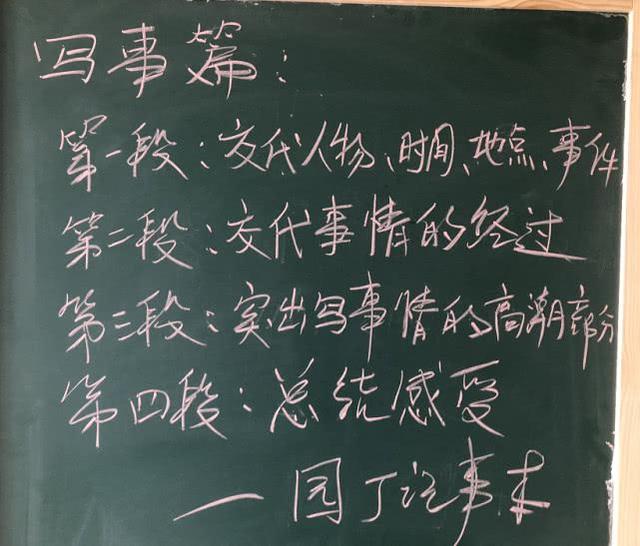 写事篇：
第一段：交代人物、时间、地点、事件
第二段：交代事情的经过
第三段：突出写事情的高潮部分
第四段：总结感受
—园丁记事本